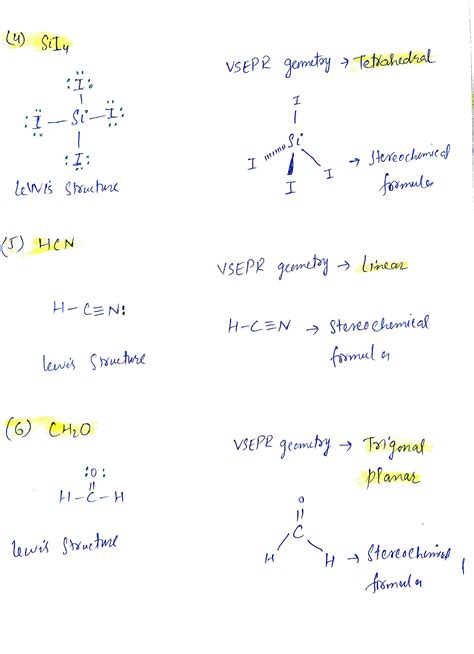 (4) SiI4
VSEPR geometry → Tetrahedral
:I:
:I — Si — I:
:I:
Lewis Structure
I
Si
I I I
→ Stereochemical
formula
(5) HCN
VSEPR geometry → Linear
H–C≡N:
H–C≡N → Stereochemical
formula
Lewis Structure
(6) CH2O
VSEPR geometry → Trigonal
planar
:O:
||
H–C–H
O
||
C
H H
→ Stereochemical
formula
Lewis Structure